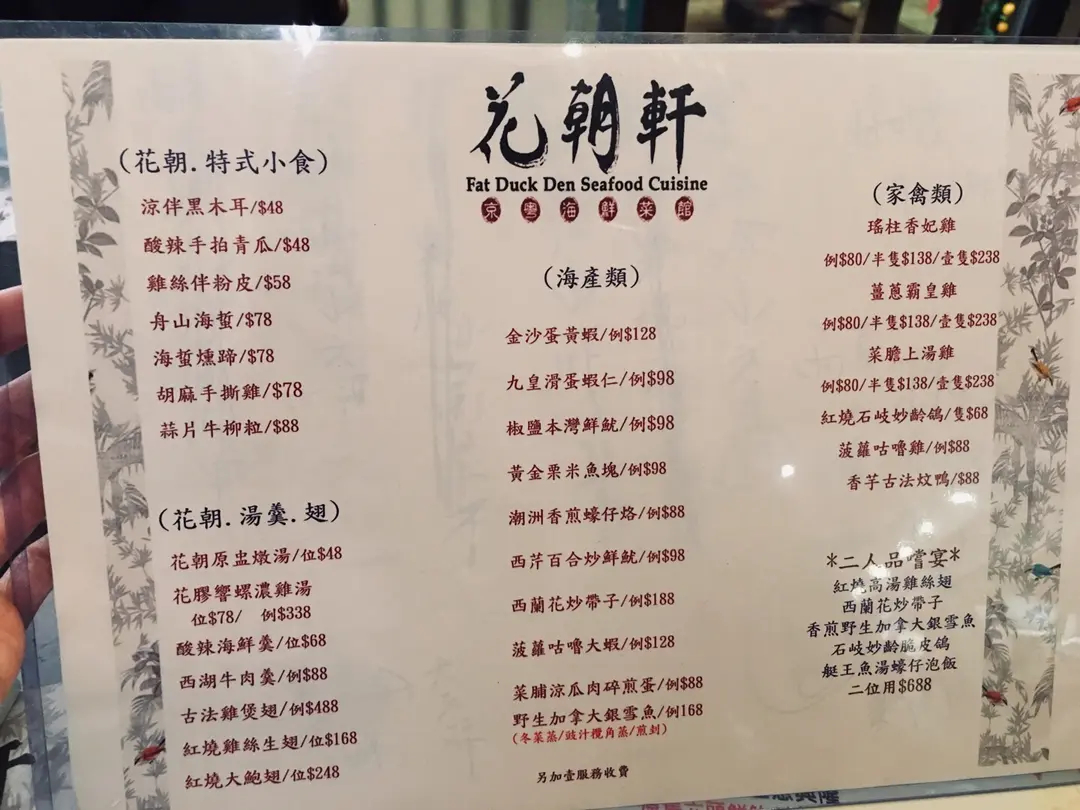 花朝軒
Fat Duck Den Seafood Cuisine
京粵海鮮菜館
(花朝.特式小食)
涼伴黑木耳/$48
酸辣手拍青瓜/$48
雞絲伴粉皮/$58
舟山海蜇/$78
海蜇燻蹄/$78
胡麻手撕雞/$78
蒜片牛柳粒/$88
(花朝.湯羹.翅)
花朝原盅燉湯/位$48
花膠響螺濃雞湯
位$78/ 例$338
酸辣海鮮羹/位$68
西湖牛肉羹/例$88
古法雞煲翅/例$488
紅燒雞絲生翅/位$168
紅燒大鮑翅/位$248
(海產類)
金沙蛋黃蝦/例$128
九皇滑蛋蝦仁/例$98
椒鹽本灣鮮魷/例$98
黃金粟米魚塊/例$98
潮洲香煎蠔仔烙/例$88
西芹百合炒鮮魷/例$98
西蘭花炒帶子/例$188
菠蘿咕嚕大蝦/例$128
菜脯涼瓜肉碎煎蛋/例$88
野生加拿大銀雪魚/例168
(冬菜蒸/豉汁欖角蒸/煎封)
另加壹服務收費
(家禽類)
瑤柱香妃雞
例$80/半隻$138/壹隻$238
薑蔥霸皇雞
例$80/半隻$138/壹隻$238
菜膽上湯雞
例$80/半隻$138/壹隻$238
紅燒石岐妙齡鴿/隻$68
菠蘿咕嚕雞/例$88
香芋古法炆鴨/$88
*二人品嚐宴*
紅燒高湯雞絲翅
西蘭花炒帶子
香煎野生加拿大銀雪魚
石岐妙齡脆皮鴿
艇王魚湯蠔仔泡飯
二位用$688